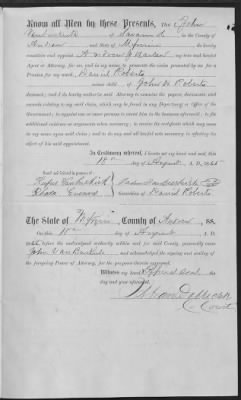 Know all Men by these Presents, That John
Van buskirk of Savannah in the County of
Andrew and State of Missouri, do hereby
constitute and appoint A. & Harlan my true and lawful
Agent or Attorney, for me, and in my name, to prosecute the claim presented by me for a
Pension for my ward, Daniel Roberts
minor child of John W Roberts
deceased; and I do hereby authorize my said Attorney to examine the papers, documents and
records relating to my said claim, which may be found in any Department or Office of the
Government; to appoint one or more persons to assist him in the business aforesaid; to file
additional evidence or arguments when necessary; to receive the certificate which may issue
to my ward upon said claim; and to do any and all lawful acts necessary to effecting the
object of his said appointment.
In Testimony whereof, I hereunto set my hand and seal, this
day of August A. D. 1865
Rufus Vanbuskirk
Guardian of Daniel Roberts
The State of Missouri County of Andrew ss.
On this day of August A. D.
before the undersigned authority within and for said County, personally came
John Van Buskirk and acknowledged the signing and sealing
of the foregoing Power of Attorney, for the purposes therein expressed.
Witness my hand & official seal